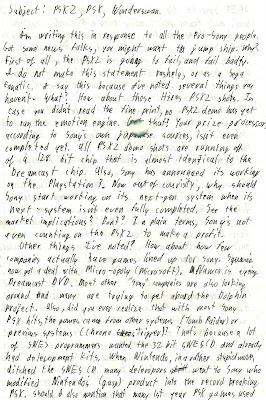 Subject: PSX2, PSX, Wonderswan.
I'm writing this in response to all the Pro-Sony people.
Got some news folks, you might want to jump ship. Why?
First of all, the PSX2 is going to fail, and fail badly.
I do not make this statement rashely, or as a Sega
fanatic, I say this because I've noted several things you
haven't- what? How about those Hires PSX2 shots. In
case you didn't read the fine print, no PSX2 demo has yet
to use the emotion engine. that? Your price processor,
according to Sonys own sources, isn't even
completed yet. All PSX2 demo shots are running off
of a 128 bit chip that is almost identical to the
Dreamcast chip. Also, Sony has announced its working
on the Playstation 3. Now out of couriosity, why should
Sony start working on its next-gen system when its
next-system isn't even fully completed. See the
market implications? Don't? In plain terms, Sony's not
even counting on the PSX2 to make a profit.
Other things I've noted? How about how few
companies actually have games lined up for Sony. Square
now got a deal with Micro-opoly (Microsoft). Namco is eyeing
Dreamcast DVD. Most other "Sony" companies are also looking
around and many are trying to get aboard the Dolphin
project. Also, did you ever realize that with most Sony
PSX hits, the games came from other systems (Tomb Raider) or
previous systems (Chrono Trigger)? That's because a lot
of SNES programmers wanted the 32 bit SNES CD and already
had development kits. When Nintendo, in a rather stupid move,
ditched the SNES CD, many developers went to Sony who
modified Nintendos (gasp) product into the record breaking
PSX. should I also mention that many last year PSX games used